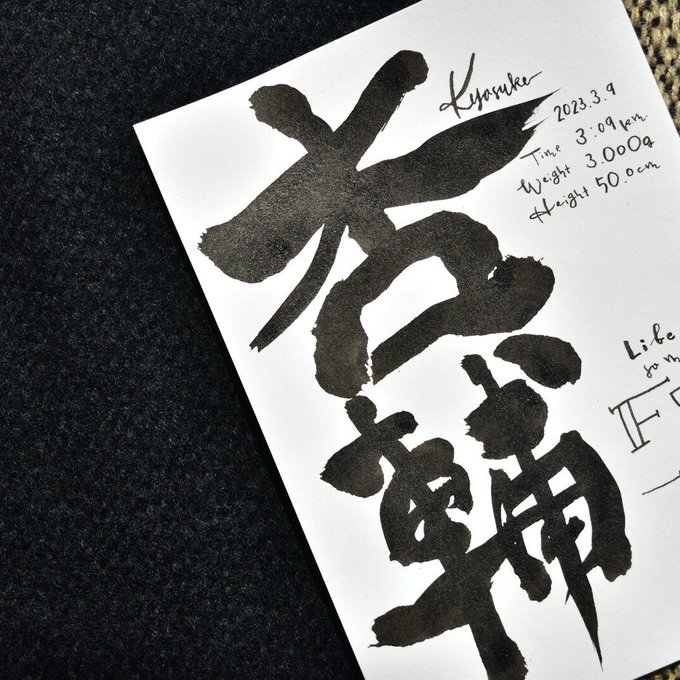 輔
Kyosuke
2023.3.9
Time 3:09 p.m.
Weight 3.000g
Height 50.0cm